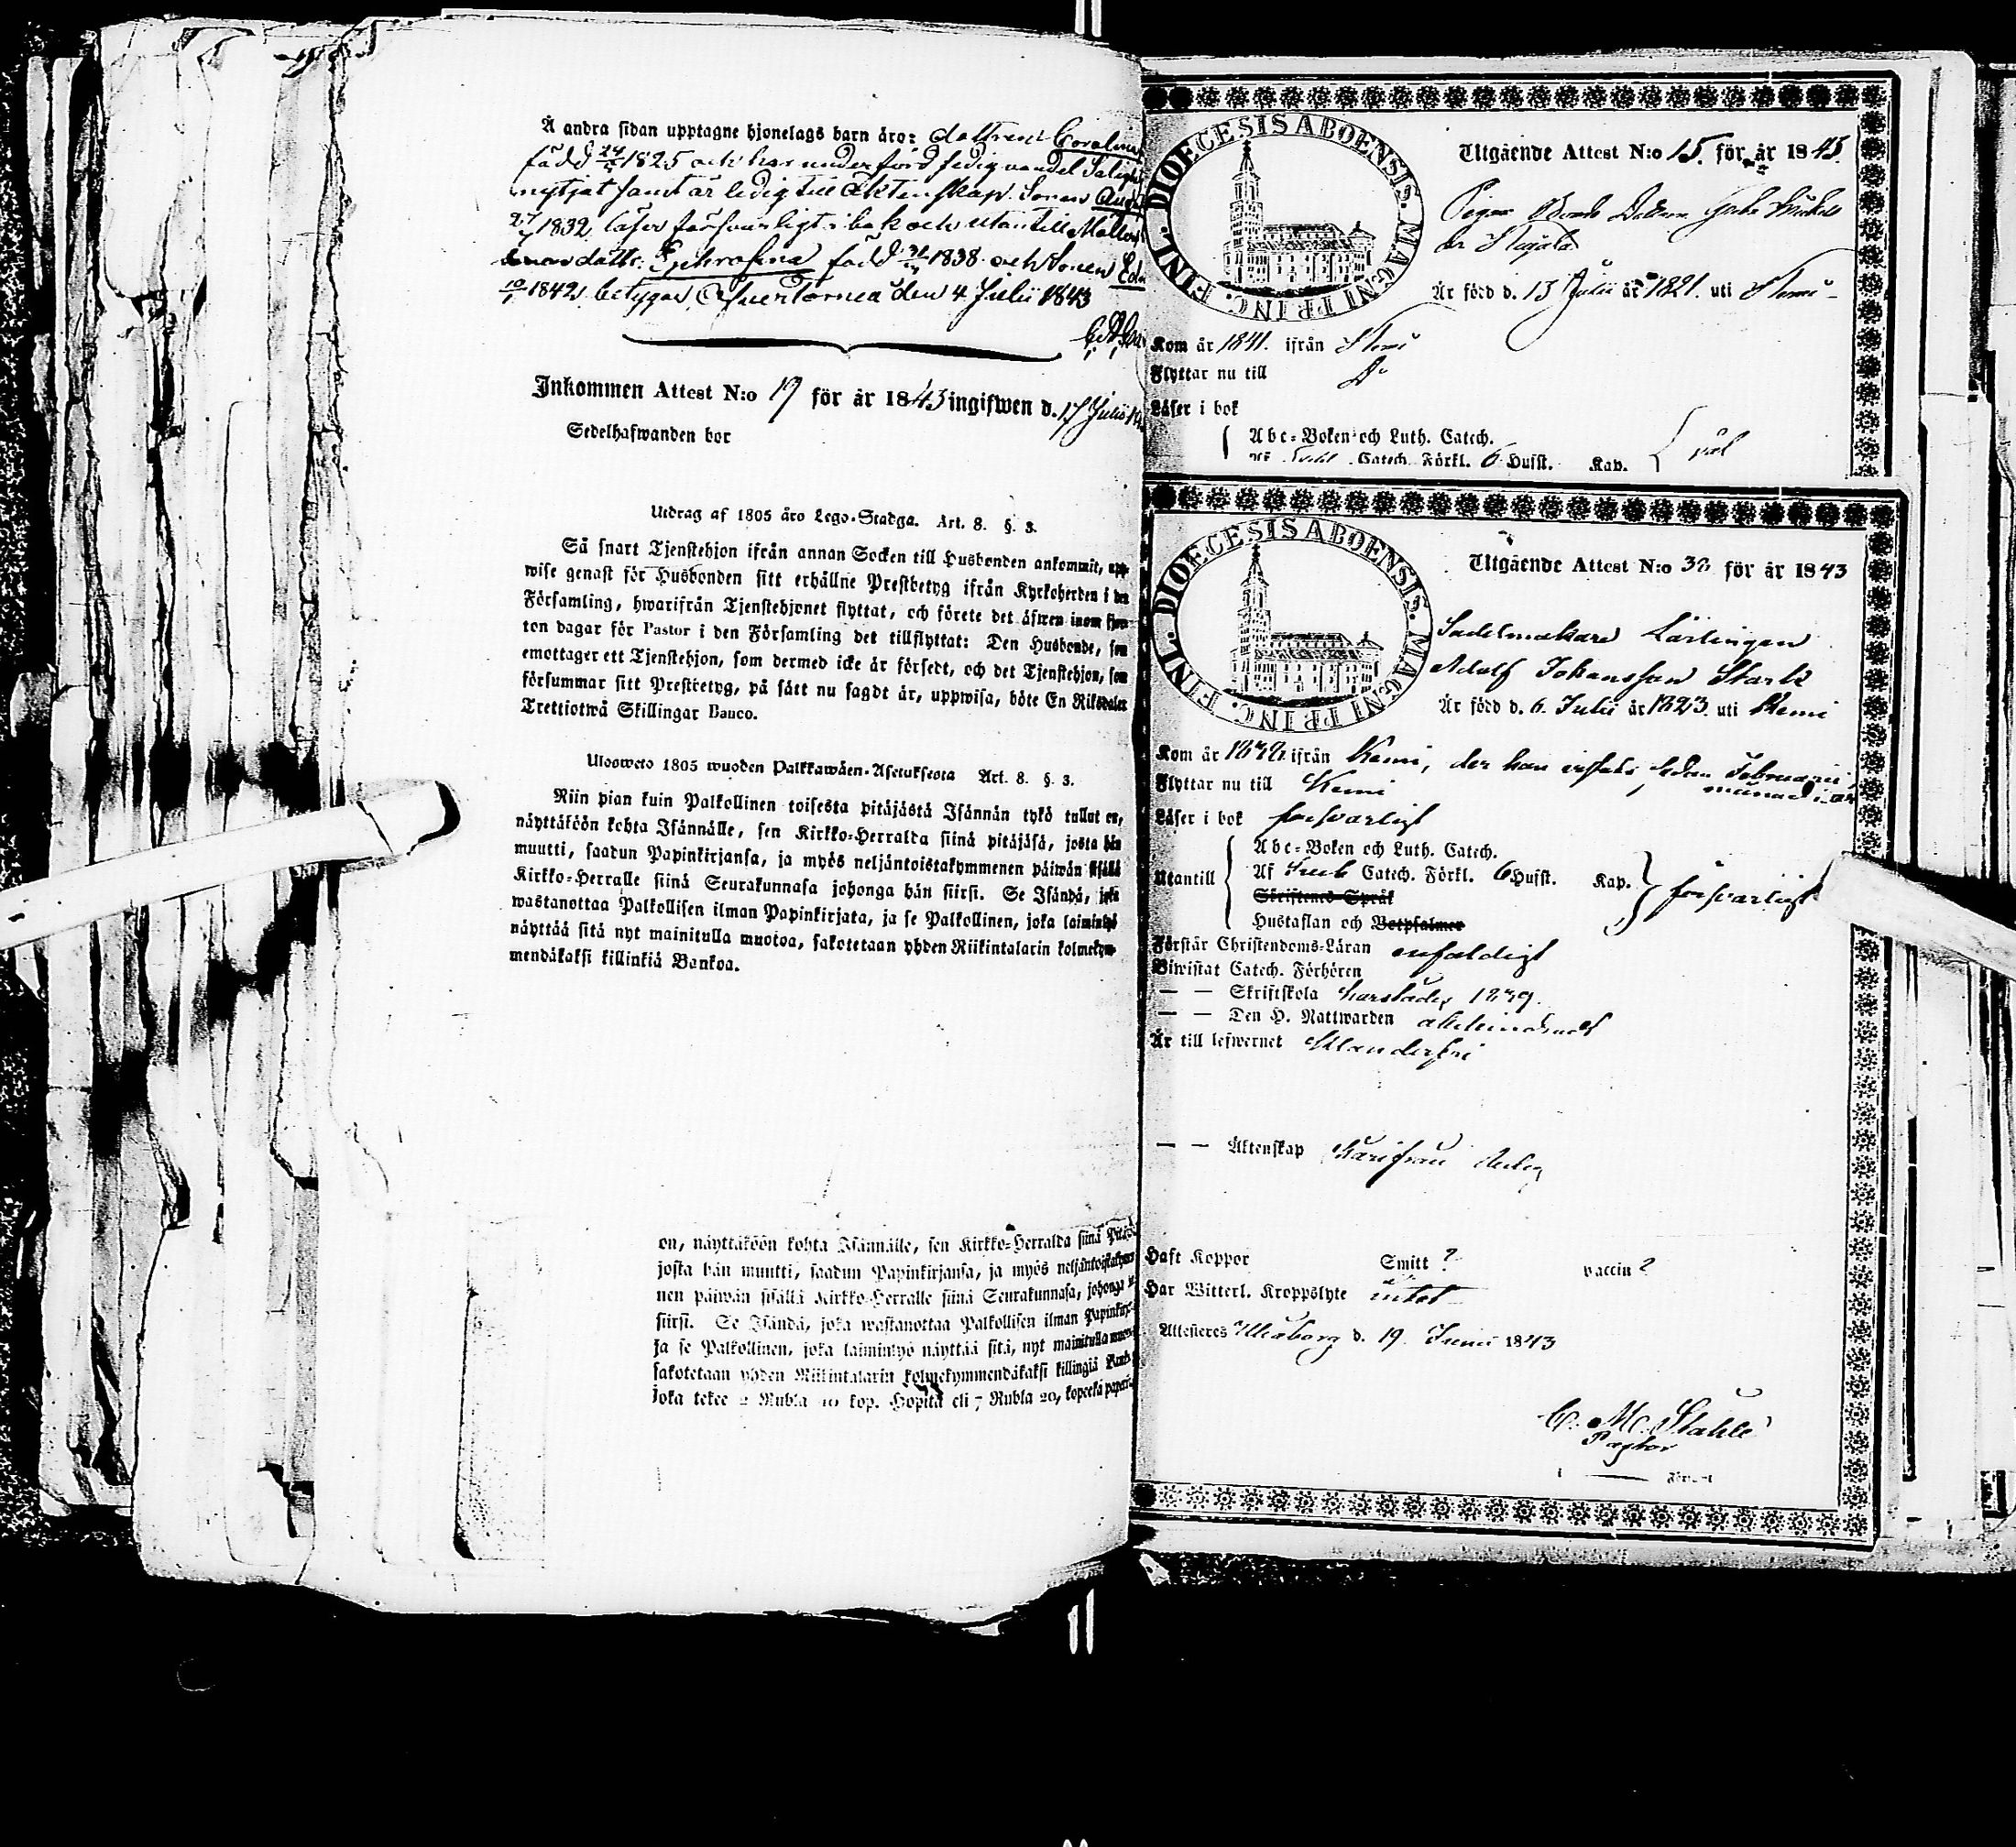 Å andra sidan upptagne hjonelags barn äro: dottren Carolina
född 24/ 1825 och har under förd sedig vandel Salig
nytjat samt är ledig till äktenskap. Sonen
27/ 1832, läser försvarligt i bok och utantill
dottr. Ephrosina född 1838 och Sonen
10/1 1842, betygar Öfvertorneå den 4 Julii 1843
Inkommen Attest N:o 19 för år 1843 ingifwen d. 17 Julii
Sedelhafwanden bor
Utdrag af 1805 års Lego-Stadga. Art. 8. §. 3.
Så snart Tjenstehjon ifrån annan Socken till Husbonden ankommit, upp-
wise genast för Husbonden sitt erhållne Prestbetyg ifrån Kyrkoherden i den
Församling, hwarifrån Tjenstehjonet flyttat, och förete det äfwen inom fjor-
ton dagar för Pastor i den Församling det tillflyttat: Den Husbonde, som
emottager ett Tjenstehjon, som dermed icke är försedt, och det Tjenstehjon, som
försummar sitt Prestbetyg, på sätt nu sagdt är, uppwisa, böte En Riksdaler
Trettiotwå Skillingar Banco.
Ulosweto 1805 wuoden Palkkawäen-Asetuksesta Art. 8. §. 3.
Niin pian kuin Palkollinen toisesta pitäjästä Isännän tykö tullut on,
näyttäköön kohta Isännälle, sen Kirkko-Herralda siinä pitäjäsä, josta hän
muutti, saadun Papinkirjansa, ja myös neljäntoistakymmenen päiwän sisällä
Kirkko-Herralle siinä Seurakunnasa johonga hän siirsi. Se Isändä, joka
wastanottaa Palkollisen ilman Papinkirjata, ja se Palkollinen, joka laiminlyö
näyttää sitä nyt mainitulla muotoa, sakotetaan yhden Riikintalarin kolmekym-
mendäkaksi killinkiä Bankoa.
on, näyttäköön kohta Isännälle, sen Kirkko-Herralda siinä Pitäj
josta hän muutti, saadun Papinkirjansa, ja myös neljäntoistakym
nen päiwän sisällä Kirkko-Herralle siinä Seurakunnasa, johonga
siirsi. Se Isändä, joka wastanottaa Palkollisen ilman Papinkirj
ja se Palkollinen, joka laiminlyö näyttää sitä, nyt mainitulla
sakotetaan yhden Riikintalarin kolmekymmendäkaksi killingiä
joka tekee 2 Rubla 10 kop. Hopita eli 7 Rubla 20, kopeekä
DIOECESIS ABOENSIS. MAGNI PRINC. FINL.
Utgående Attest N:o 15. för år 1843.
Pigan
Är född d. 13 Julii år 1821. uti
Kom år 1841. ifrån
Flyttar nu till Do
Läser i bok
Abc-Boken och Luth. Catech.
Catech. Förkl. 6 Hufst. Kap. } väl
DIOECESIS ABOENSIS. MAGNI PRINC. FINL.
Utgående Attest N:o 32 för år 1843
Sadelmakare Lärlingen
Adolf Johansson Stark
Är född d. 6. Julii år 1823. uti Kemi
Kom år ifrån Kemi, der han vistats sedan Februarii
månad i år
Flyttar nu till Kemi
Läser i bok försvarligt
Utantill { Abc-Boken och Luth. Catech.
Af Catech. Förkl. 6 Hufst. Kap. } försvarligt
Skriftenes Språk
Hustaflan och Botpsalmer
Förstår Christendoms-Läran enfaldigt
Biwistat Catech. Förhören
— — Skriftskola
— — Den H. Nattwarden
Är till lefwernet Klanderfri
— — Äktenskap härifrån ledig
Haft Koppor Smitt ? vaccin ?
Har Witterl. Kroppslyte intet
Attesteres Uleåborg d. 19. Junii 1843
C. M. Stahle
Pastor